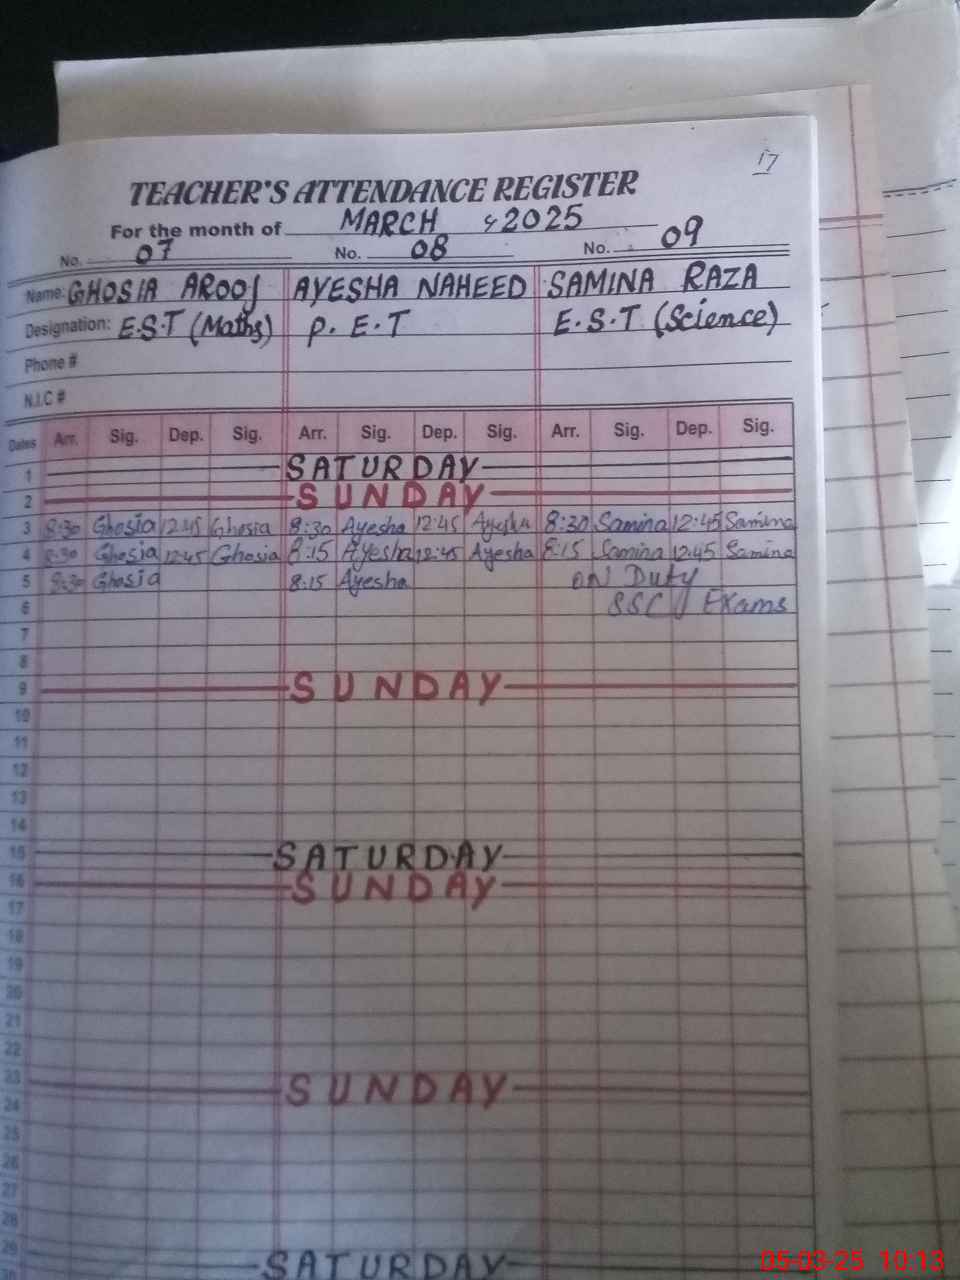 17
TEACHER'S ATTENDANCE REGISTER
For the month of MARCH , 2025
No. 07 No. 08 No. 09
Name: GHOSIA AROOJ AYESHA NAHEED SAMINA RAZA
Designation: E.S.T (Maths) P.E.T E.S.T (Science)
Phone #
N.I.C #
Dates Arr. Sig. Dep. Sig. Arr. Sig. Dep. Sig. Arr. Sig. Dep. Sig.
1 SATURDAY
2 SUNDAY
3 8:30 Ghosia 12:45 Ghosia 8:30 Ayesha 12:45 Ayesha 8:30 Samina 12:45 Samina
4 8:30 Ghosia 12:45 Ghosia 8:15 Ayesha 12:45 Ayesha 8:15 Samina 12:45 Samina
5 8:30 Ghosia 8:15 Ayesha ON Duty
6 SSC Exams
7
8
9 SUNDAY
10
11
12
13
14
15 SATURDAY
16 SUNDAY
17
18
19
20
21
22
23 SUNDAY
24
25
26
27
28
29 SATURDAY
30
05-03-25 10:13